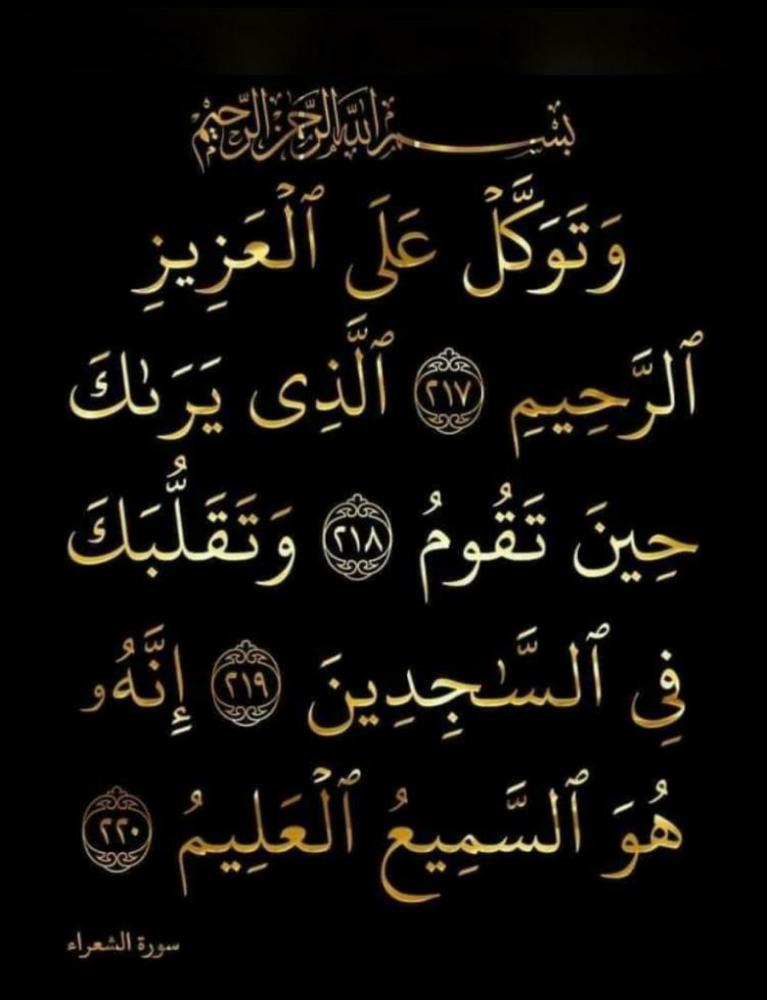 بسم الله الرحمن الرحيم
وَتَوَكَّلْ عَلَى ٱلْعَزِيزِ
ٱلرَّحِيمِ ٢١٧ ٱلَّذِى يَرَىٰكَ
حِينَ تَقُومُ ٢١٨ وَتَقَلُّبَكَ
فِى ٱلسَّـٰجِدِينَ ٢١٩ إِنَّهُۥ
هُوَ ٱلسَّمِيعُ ٱلْعَلِيمُ ٢٢٠
سورة الشعراء